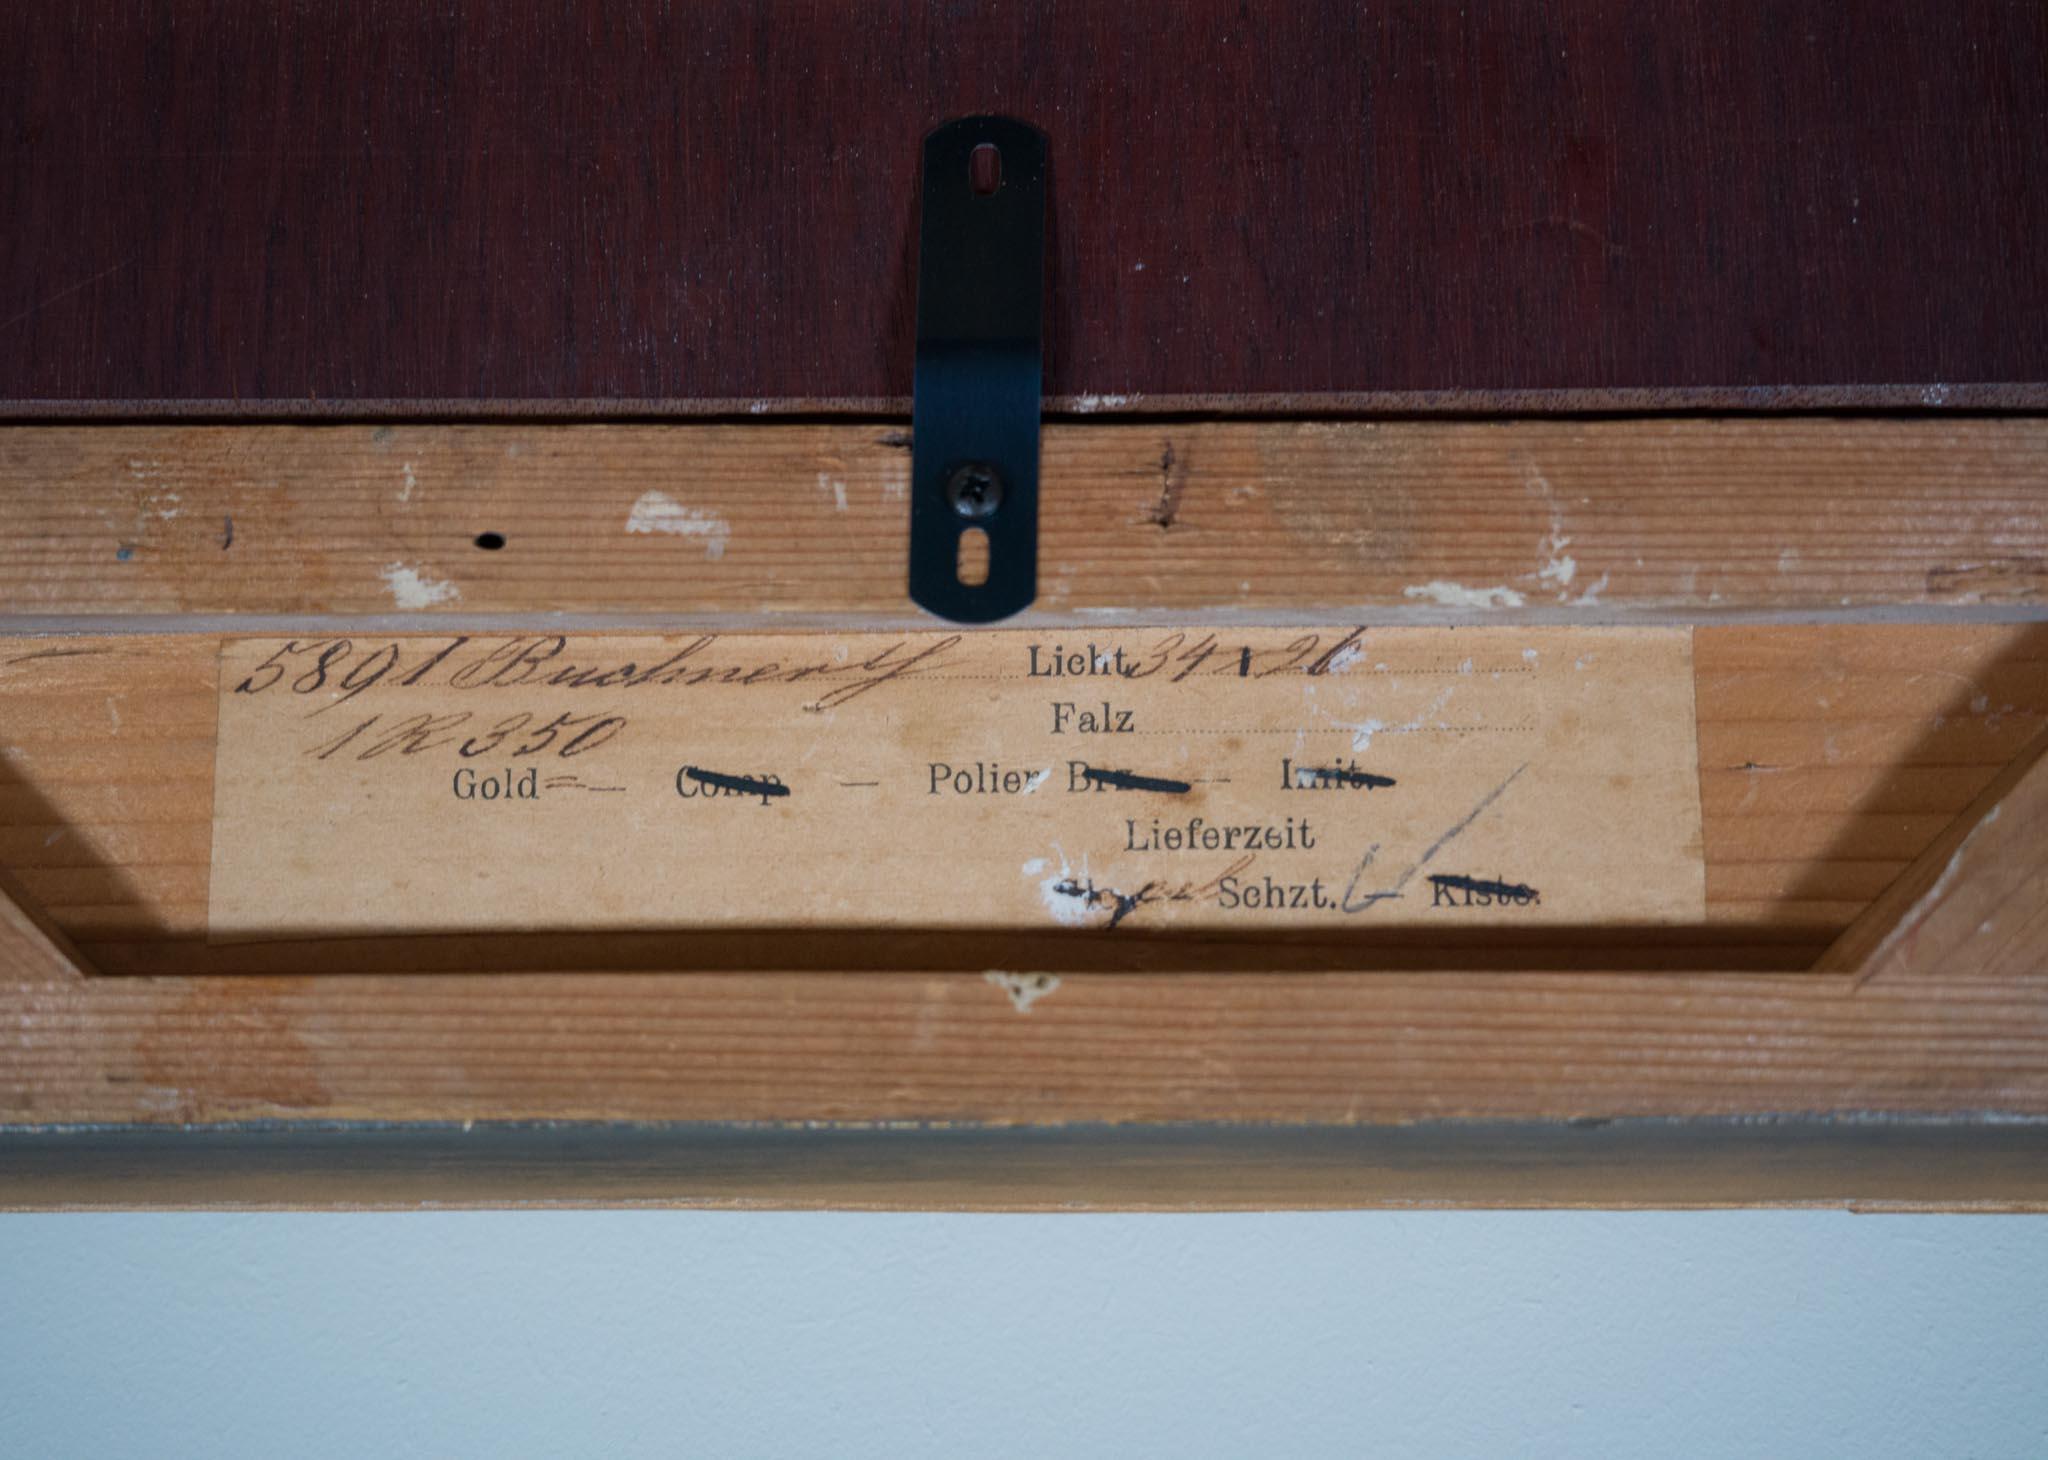 5891 Buchner Licht 34 x 26
1 R 350 Falz
Gold — Comp — Polier Brz — Imit.
Lieferzeit
Schzt. Kiste.